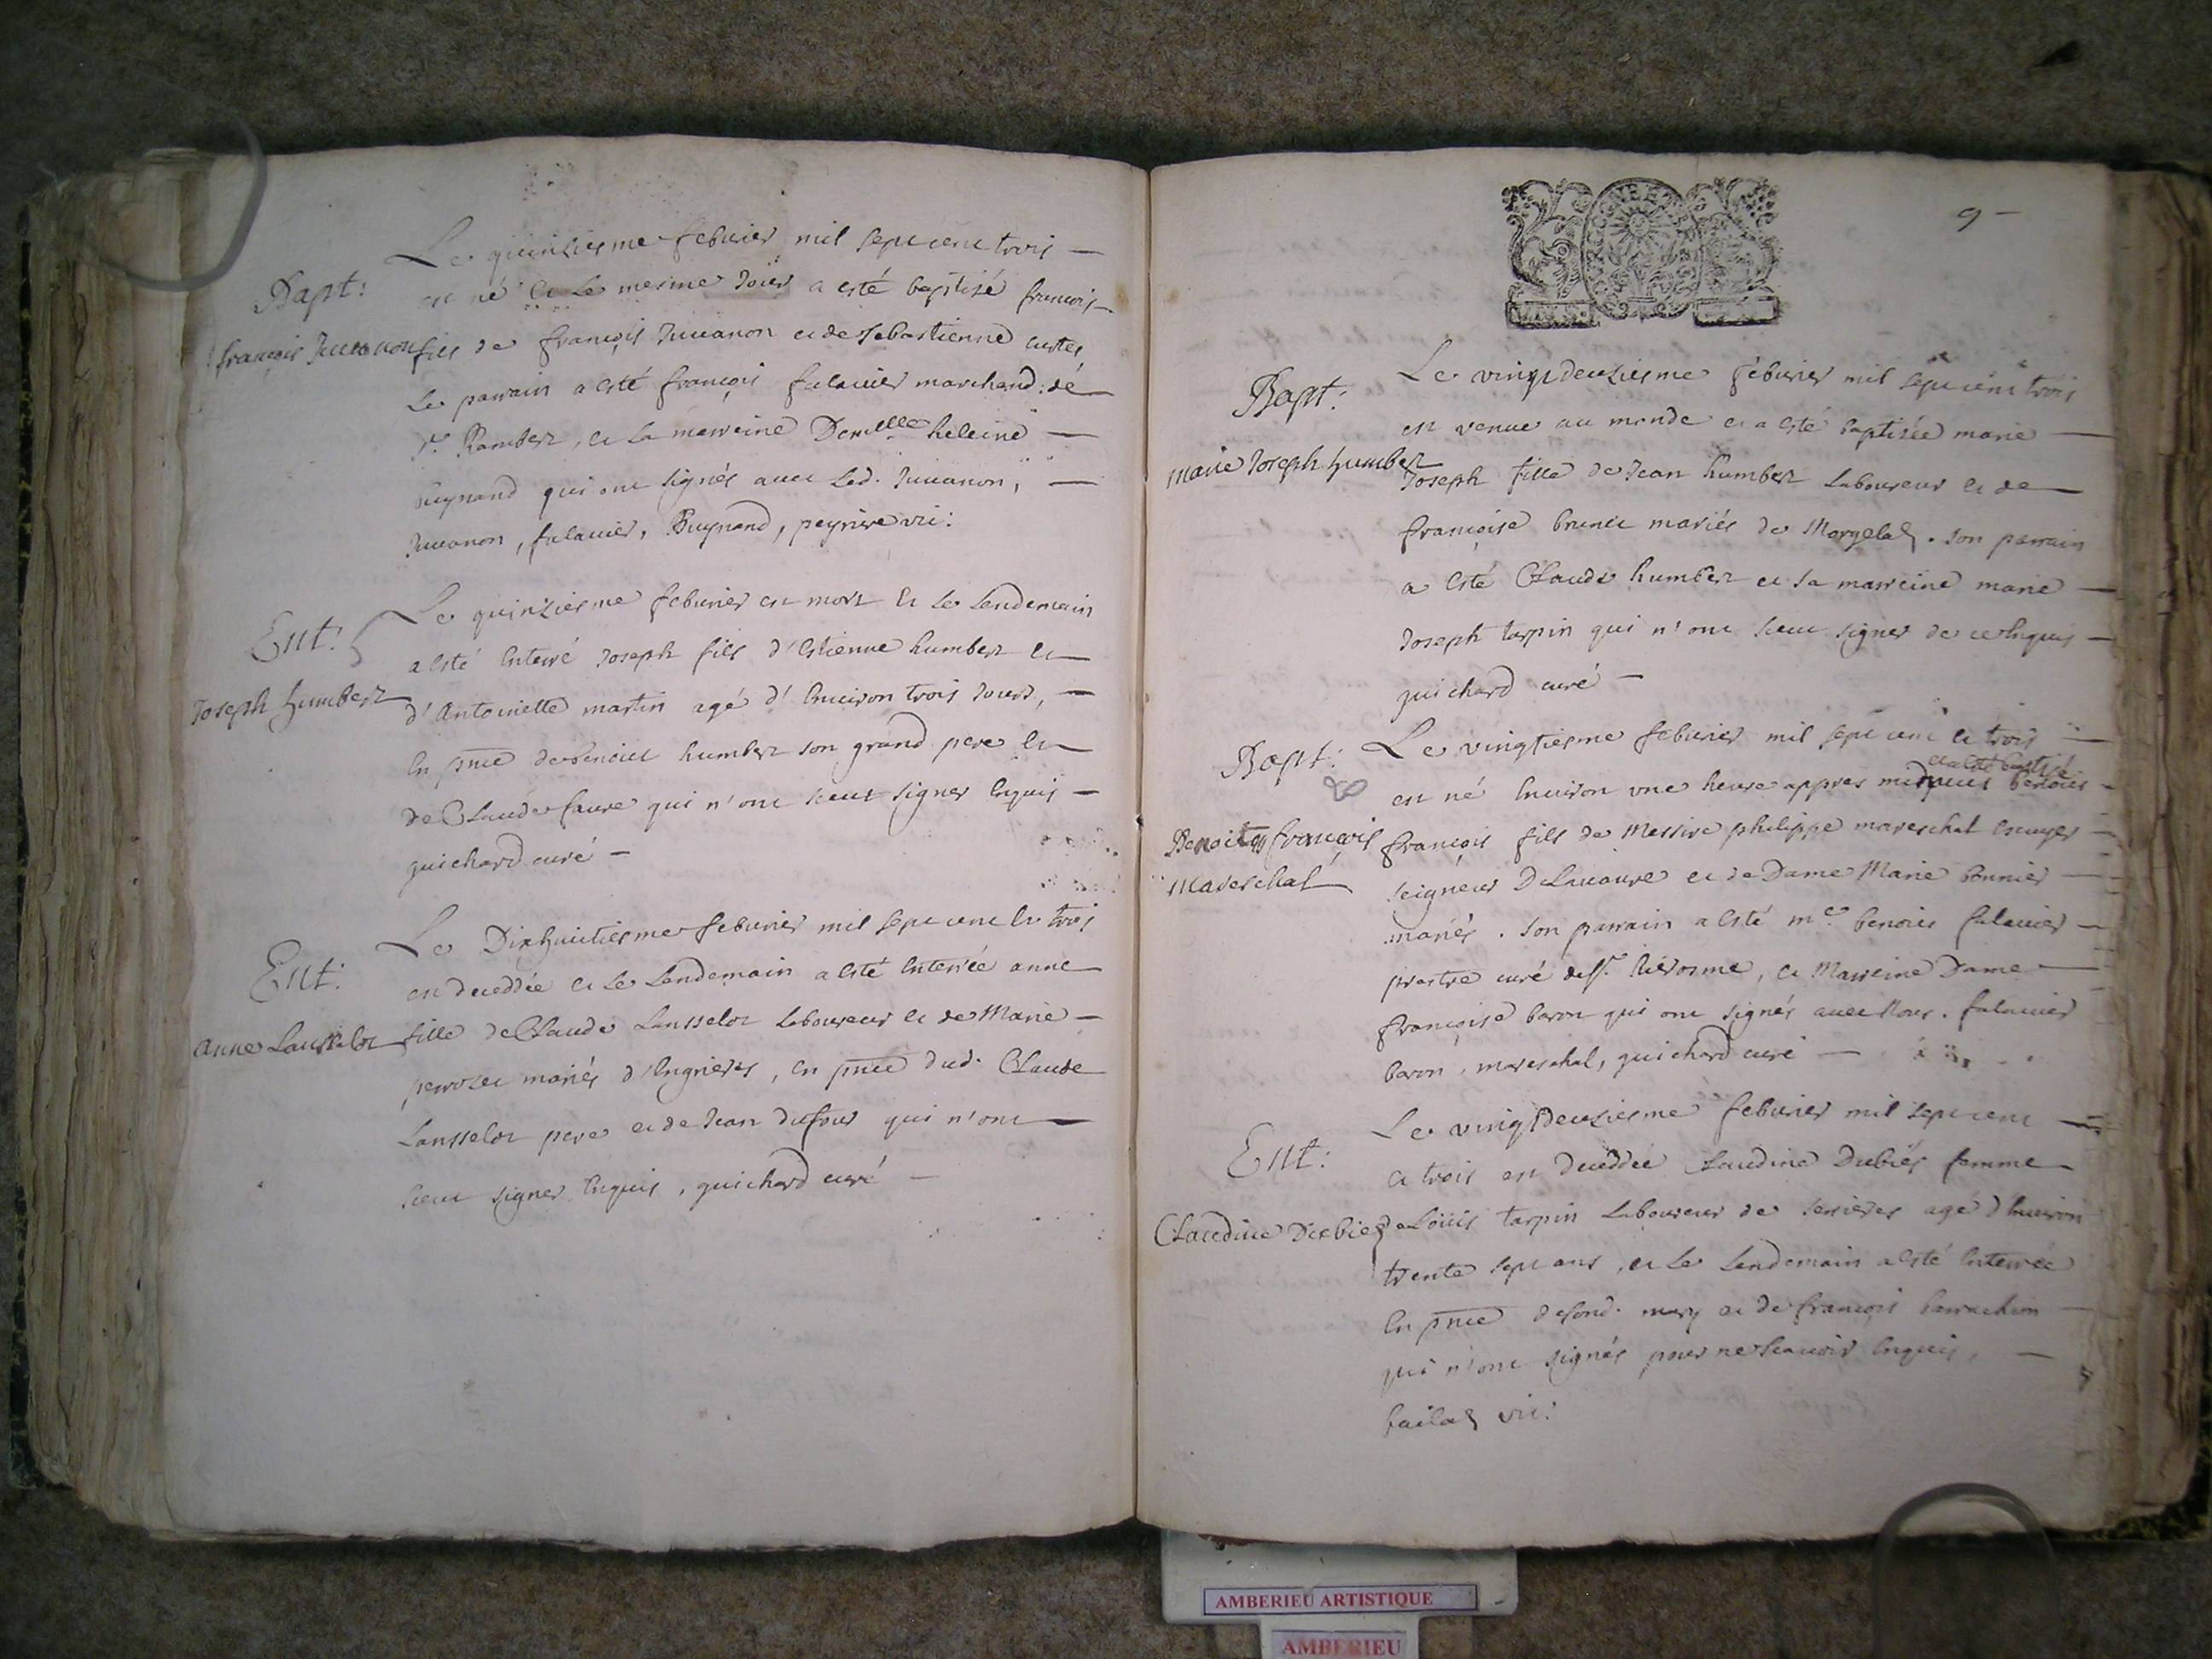 Le quinziesme febvrier mil sept cent trois —
Bapt: est né et le mesme jour a esté baptisé francois
françois Juvanon fils de françois Juvanon et de Sebastienne
Le parrain a esté françois falavier marchand de
St. Rambert, et la marreine Demlle heleine —
Buynand qui ont signés avec Led. Juvanon, —
Juvanon, falavier, Buynand, peyrive vic:
Le quinziesme febvrier est mort et le lendemain
Ent: a esté enterré Joseph fils d'estienne humbert et
Joseph humbert d'Antoinette martin agé d'environ trois jours, —
en pnce de benoict humbert son grand pere et
de Claude faure qui n'ont sceut signer enquis —
guichard curé —
Le Dixhuictiesme febvrier mil sept cent et trois
Ent: est deceddée et le lendemain a esté enterrée anne
anne Lansselot fille de Claude Lansselot laboureur et de Marie —
perrozet mariés d'engrieres, en pnce dud. Claude
Lansselot pere et de Jean dufour qui n'ont
sceut signer enquis, guichard curé —
9 —
Le vingtdeuziesme febvrier mil sept cent trois
Bapt: est venue au monde et a esté baptisée marie —
marie Joseph humbert Joseph fille de Jean humbert laboureur et de
françoise brunet mariés de Morgelas. son parrain
a esté Claude humbert et sa marreine marie —
Joseph tarpin qui n'ont sceut signer de ce enquis —
guichard curé —
Bapt: Le vingtiesme febvrier mil sept cent et trois
et a esté baptisé
est né environ une heure appres benoict
Benoict françois françois fils de Messire philippe mareschal escuyer
Mareschal seigneur De Lavaure et de Dame Marie bonnier
mariés. son parrain a esté mre benoict falavier
prestre curé de St. hierosme, et Marreine Dame
françoise baron qui ont signés avec nous. falavier
baron, mareschal, guichard curé —
Le vingtdeuziesme febvrier mil sept cent
Ent: et trois est deceddée Claudine Dubies femme
Claudine Dubies de Loüis tarpin laboureur de serrieres age d'environ
trente sept ans, et le lendemain a esté enterrée
en pnce de sond. mary et de françois barrachin
qui n'ont signés pour ne scavoir enquis, —
vic:
AMBERIEU ARTISTIQUE
AMBERIEU